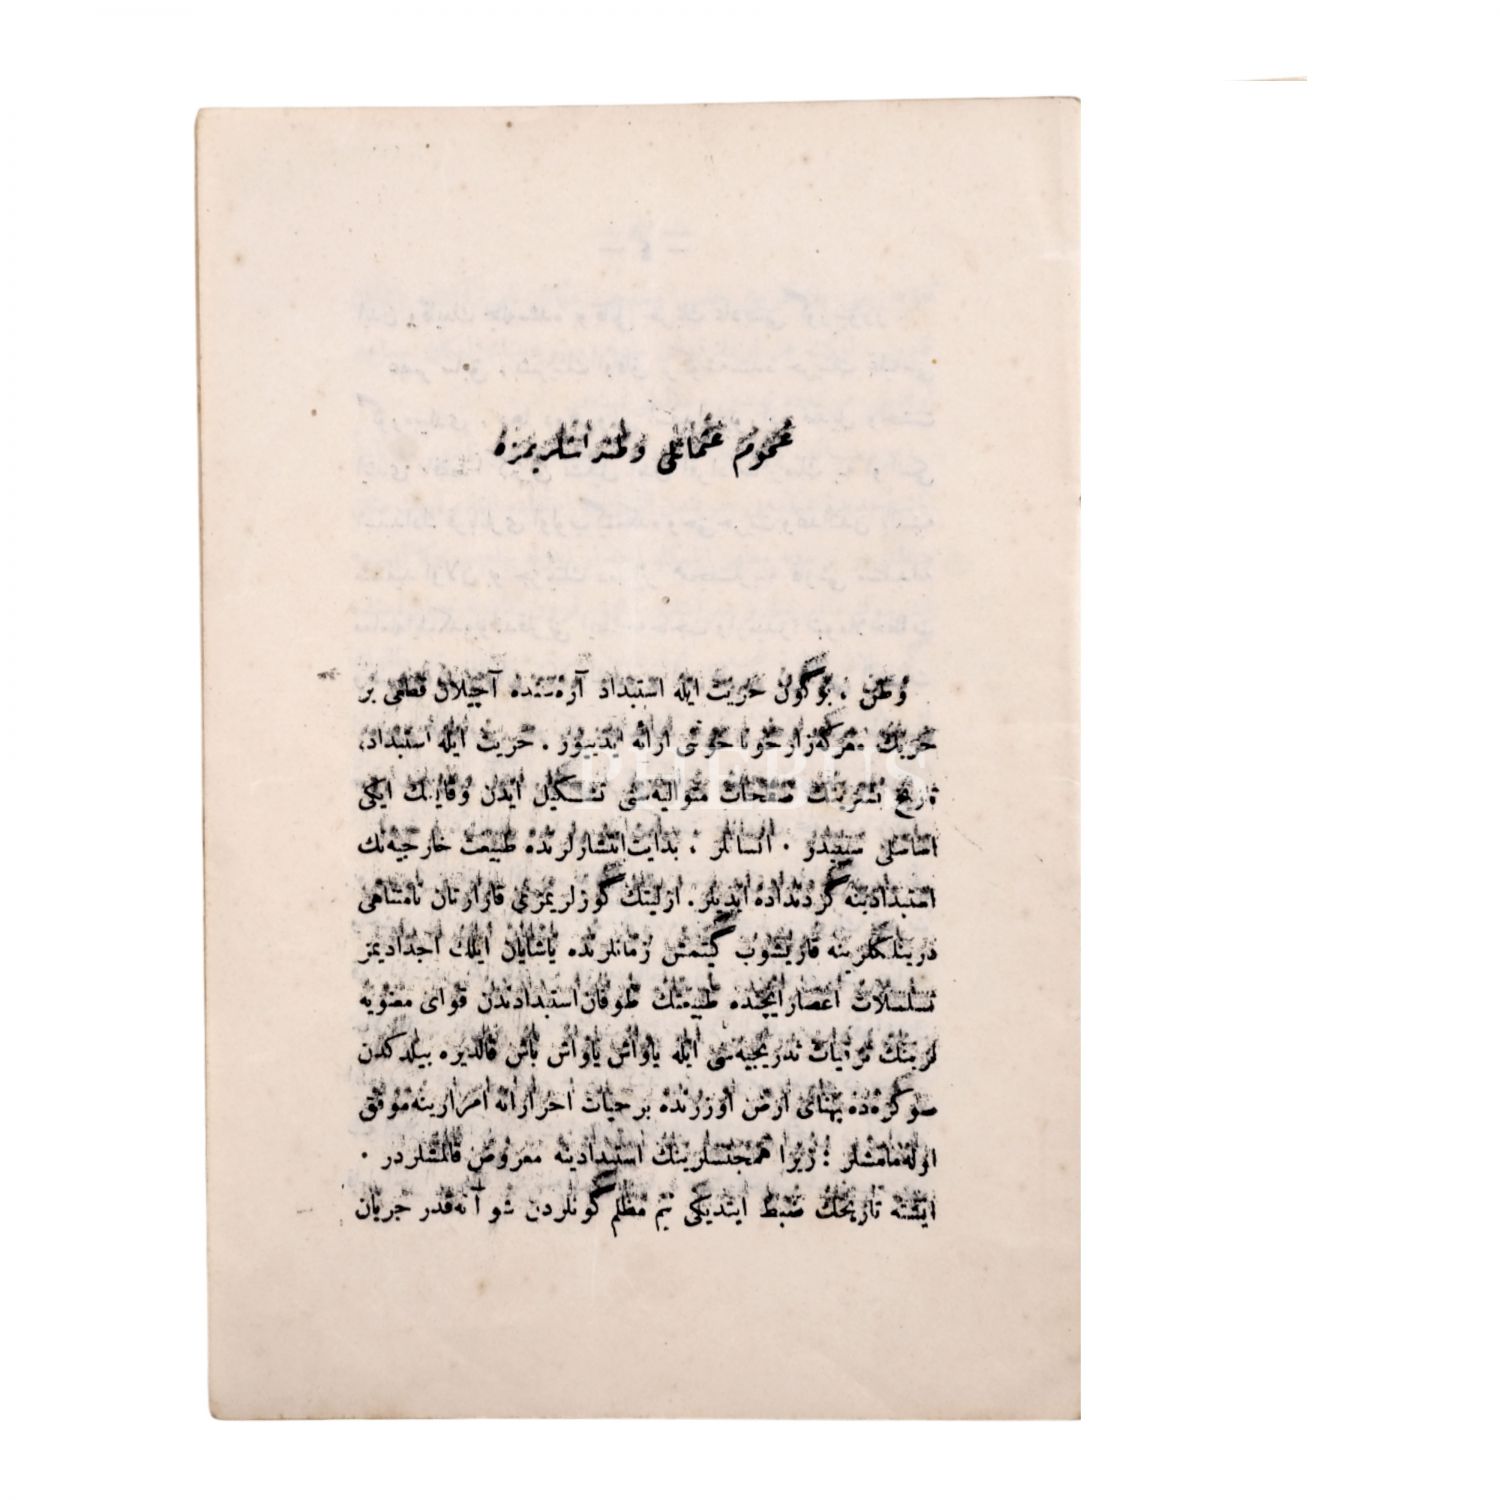 عموم عثمانلی وطنداشلریمزه
وطن ، بوگون حریت ایله استبداد آره‌سنده آچیلان قطعی بر
حربك معرکه‌زار خونا خونی ارائه ایدییور . حریت ایله استبداد،
تاریخ بشریتك صفحات متوالیه‌سنی تشکیل ایدن وقایعك ایکی
اساسلی سببیدر . انسانلر ، بدایت انتشارلرنده طبیعت خارجیه‌نك
استبدادینه گردنداده ایدیلر . ازلیتك گوزلریمزی قارارتان نامتناهی
درینلکلرینه قاریشوب گیتمش زمانلرنده یاشایان ایلك اجدادیمز
تسلسلات اعصار ایچنده طبیعتك طوفان استبدادندن قوای معنویه
لرینك ترقیات تدریجیه‌سی ایله یاواش یاواش باش قالدیره بیلدکدن
صوکره‌ده پهنای ارض اوزرنده بر حیات احرارانه امرارینه موفق
اوله‌مامشلر ؛ زیرا همجنسلرینك استبدادینه معروض قالمشلردر .
ایشته تاریخك ضبط ایتدیکی نیم مظلم گونلردن شو آنه قدر جریان
PHEBUS